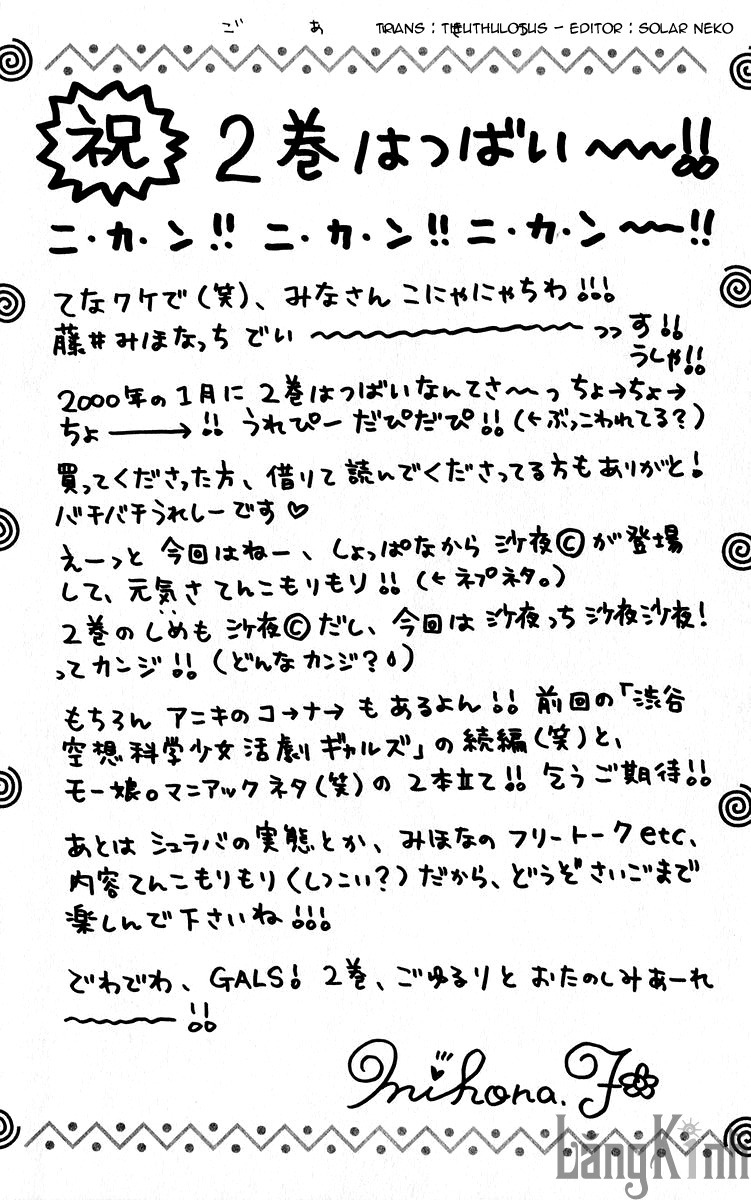 ご あ き う
TRANS : TIEUTHULOTUS - EDITOR : SOLAR NEKO
祝 2巻はつばい〜〜!!
ニ・カ・ン!! ニ・カ・ン!! ニ・カ・ン〜〜!!
てなワケで(笑)、みなさん こにゃにゃちわ!!!
藤井みほなっち でい〜〜〜〜〜〜〜〜っっす!!
うしゃ!!
2000年の1月に 2巻はつばいなんてさ〜〜っ ちょ→ちょ→
ちょ――→!! うれぴー だぴだぴ!! (←ぶっこわれてる?)
買ってくださった方、借りて読んでくださってる方もありがと!
バチバチうれしーです♡
えーっと 今回はねー、しょっぱなから 沙夜©が登場
して、元気さ てんこもりもり!! (←ネプネタ。)
2巻のしめも 沙夜©だし、今回は沙夜っち沙夜沙夜!
ってカンジ!! (どんなカンジ?)
もちろん アニキのコ→ナ→もあるよん!! 前回の「渋谷
空想科学少女活劇ギャルズ」の続編(笑)と、
モー娘。マニアックネタ(笑)の 2本立て!! 乞うご期待!!
あとは シュラバの実態とか、みほなの フリートークetc、
内容てんこもりもり(しつこい?)だから、どうぞさいごまで
楽しんで下さいね!!!
でわでわ、GALS! 2巻、ごゆるりと おたのしみあーれ
〜〜〜〜!!
Mihona.F
LangKinh